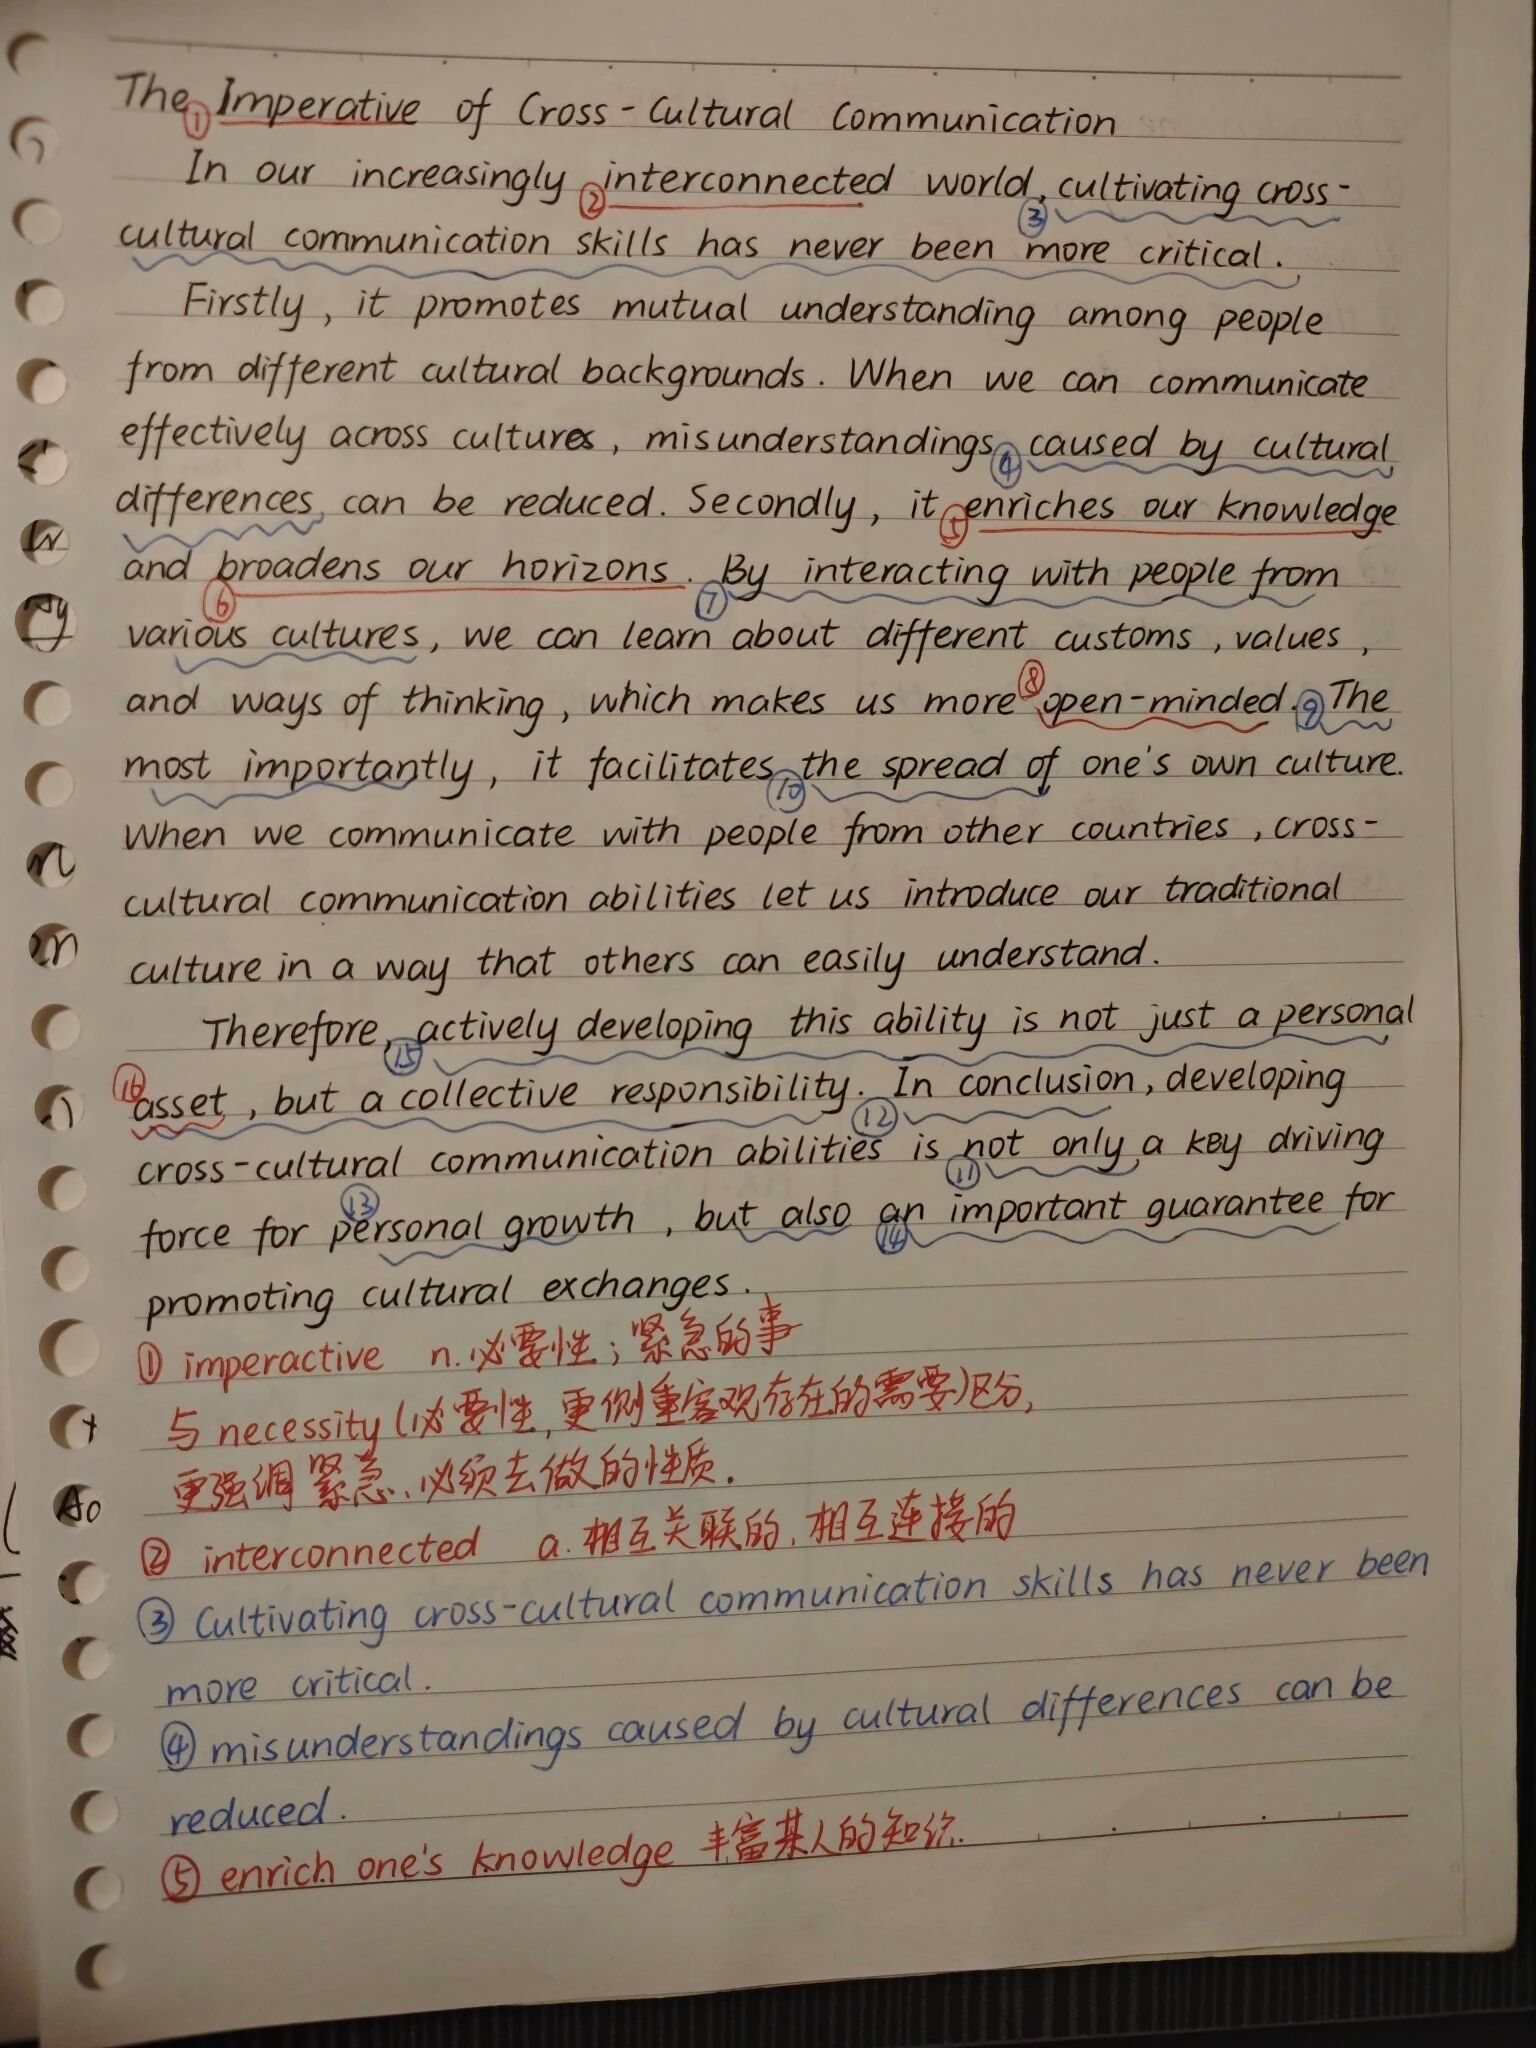 The ①Imperative of Cross-Cultural Communication
In our increasingly ②interconnected world, ③cultivating cross-
cultural communication skills has never been more critical.
Firstly, it promotes mutual understanding among people
from different cultural backgrounds. When we can communicate
effectively across cultures, misunderstandings ④caused by cultural
differences can be reduced. Secondly, it ⑤enriches our knowledge
and ⑥broadens our horizons. ⑦By interacting with people from
various cultures, we can learn about different customs, values,
and ways of thinking, which makes us more ⑧open-minded. ⑨The
most importantly, it facilitates ⑩the spread of one's own culture.
When we communicate with people from other countries, cross-
cultural communication abilities let us introduce our traditional
culture in a way that others can easily understand.
Therefore, ⑮actively developing this ability is not just a personal
⑯asset, but a collective responsibility. ⑫In conclusion, developing
cross-cultural communication abilities is ⑪not only a key driving
force for ⑬personal growth, but also ⑭an important guarantee for
promoting cultural exchanges.
① imperactive n. 必要性；紧急的事
与 necessity (必要性,更侧重客观存在的需要)区分,
更强调紧急、必须去做的性质.
② interconnected a. 相互关联的,相互连接的
③ Cultivating cross-cultural communication skills has never been
more critical.
④ misunderstandings caused by cultural differences can be
reduced.
⑤ enrich one's knowledge 丰富某人的知识.